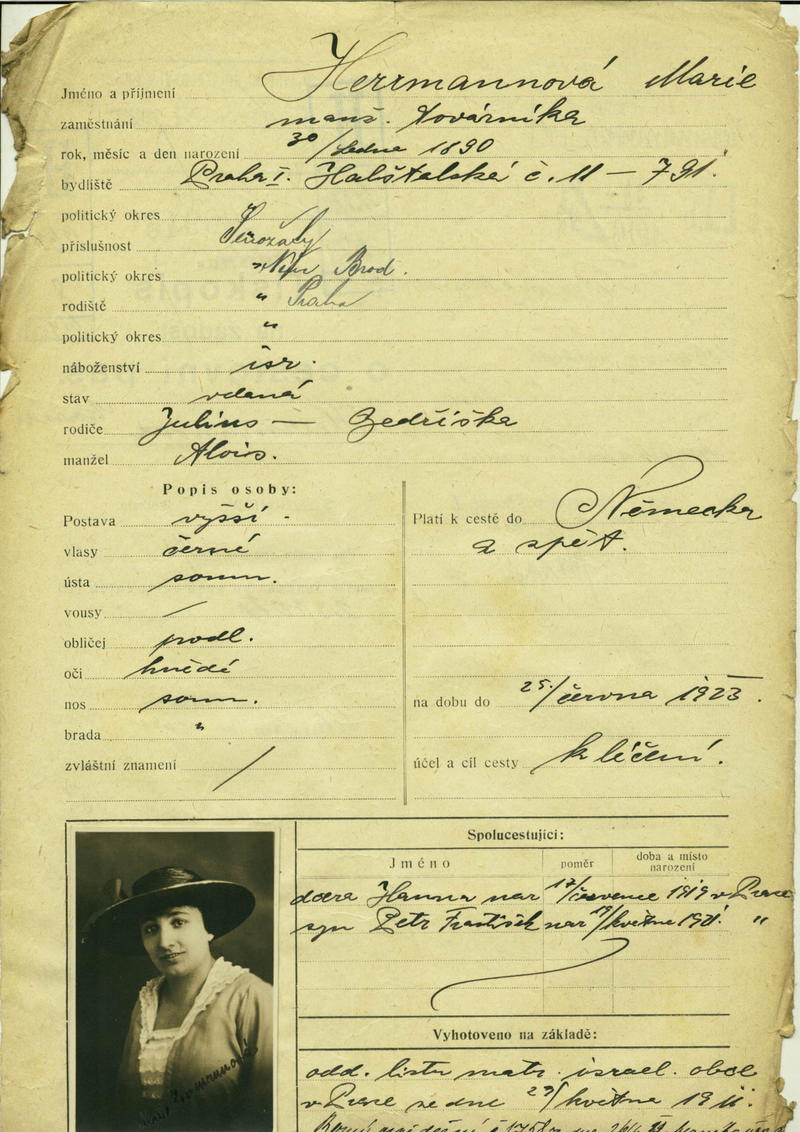 Jméno a příjmení Herrmannová Marie
zaměstnání manž. továrníka
rok, měsíc a den narození 30/ledna 1890
bydliště Praha I. Haštalská č. 11 — 791.
politický okres
příslušnost
politický okres Brod.
rodiště " Praha
politický okres "
náboženství isr.
stav vdaná
rodiče Julius — Bedřiška
manžel Alois.
Popis osoby:
Postava vyšší
vlasy černé
ústa soum.
vousy /
obličej podl.
oči hnědé
nos soum.
brada "
zvláštní znamení /
Platí k cestě do Německa
a zpět.
na dobu do 25./června 1923.
účel a cíl cesty k léčení.
Spolucestující:
Jméno poměr doba a místo narození
dcera Hanna nar 17/července 1919 v Praze
syn Petr František nar 19/května 1921. "
Vyhotoveno na základě:
odd. listu matr. israel. obce
v Praze ze dne 29/května 1911.